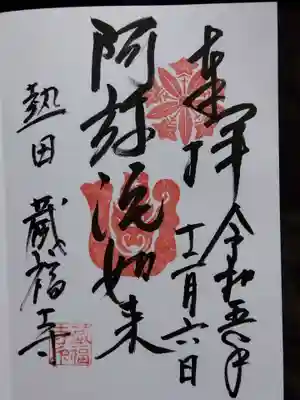 奉拝
令和五年
十二月六日
阿弥陀如来
熱田 蔵福寺